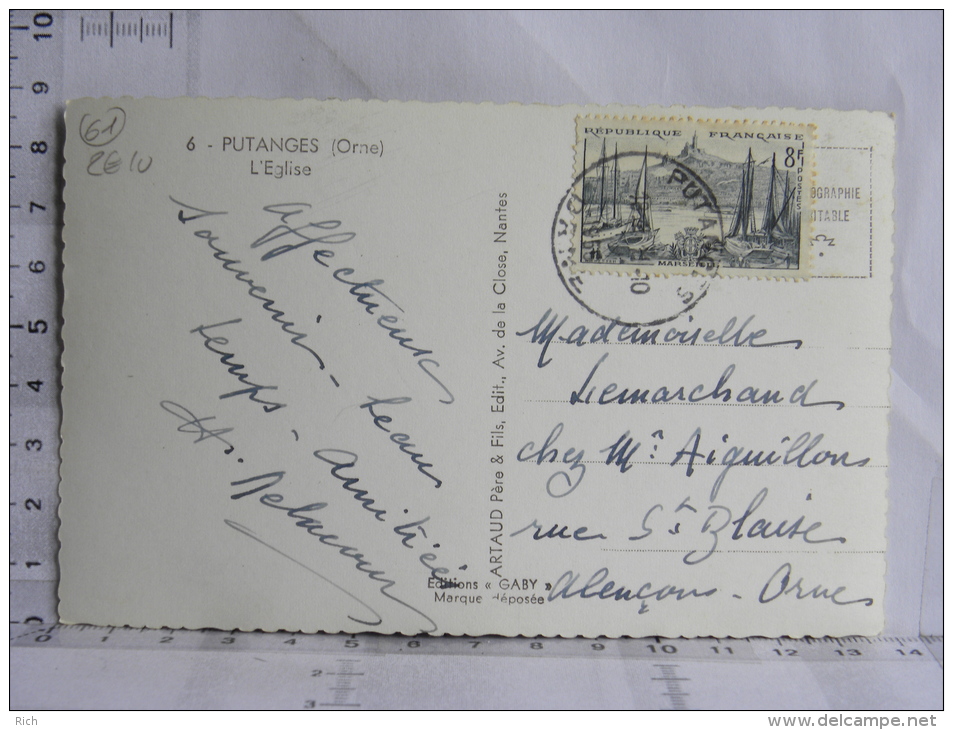 61
2E10
6 - PUTANGES (Orne)
L'Eglise
affectueux
souvenir - beau
temps - amitiés
H. Delacour
ARTAUD Père & Fils, Edit., Av. de la Close, Nantes
Editions « GABY »
Marque déposée
RÉPUBLIQUE FRANÇAISE
8F
POSTES
MARSEILLE
PUTANGES
ORNE
10
OGRAPHIE
ITABLE
Mademoiselle
Lemarchand
chez Mr Aiguillons
rue St Blaise
Alençons - Orne
10
9
8
7
6
5
4
3
2
1
0
0 1 2 3 4 5 6 7 8 9 10 11 12 13 14
2
3
1
2
Rich
www.delcampe.net